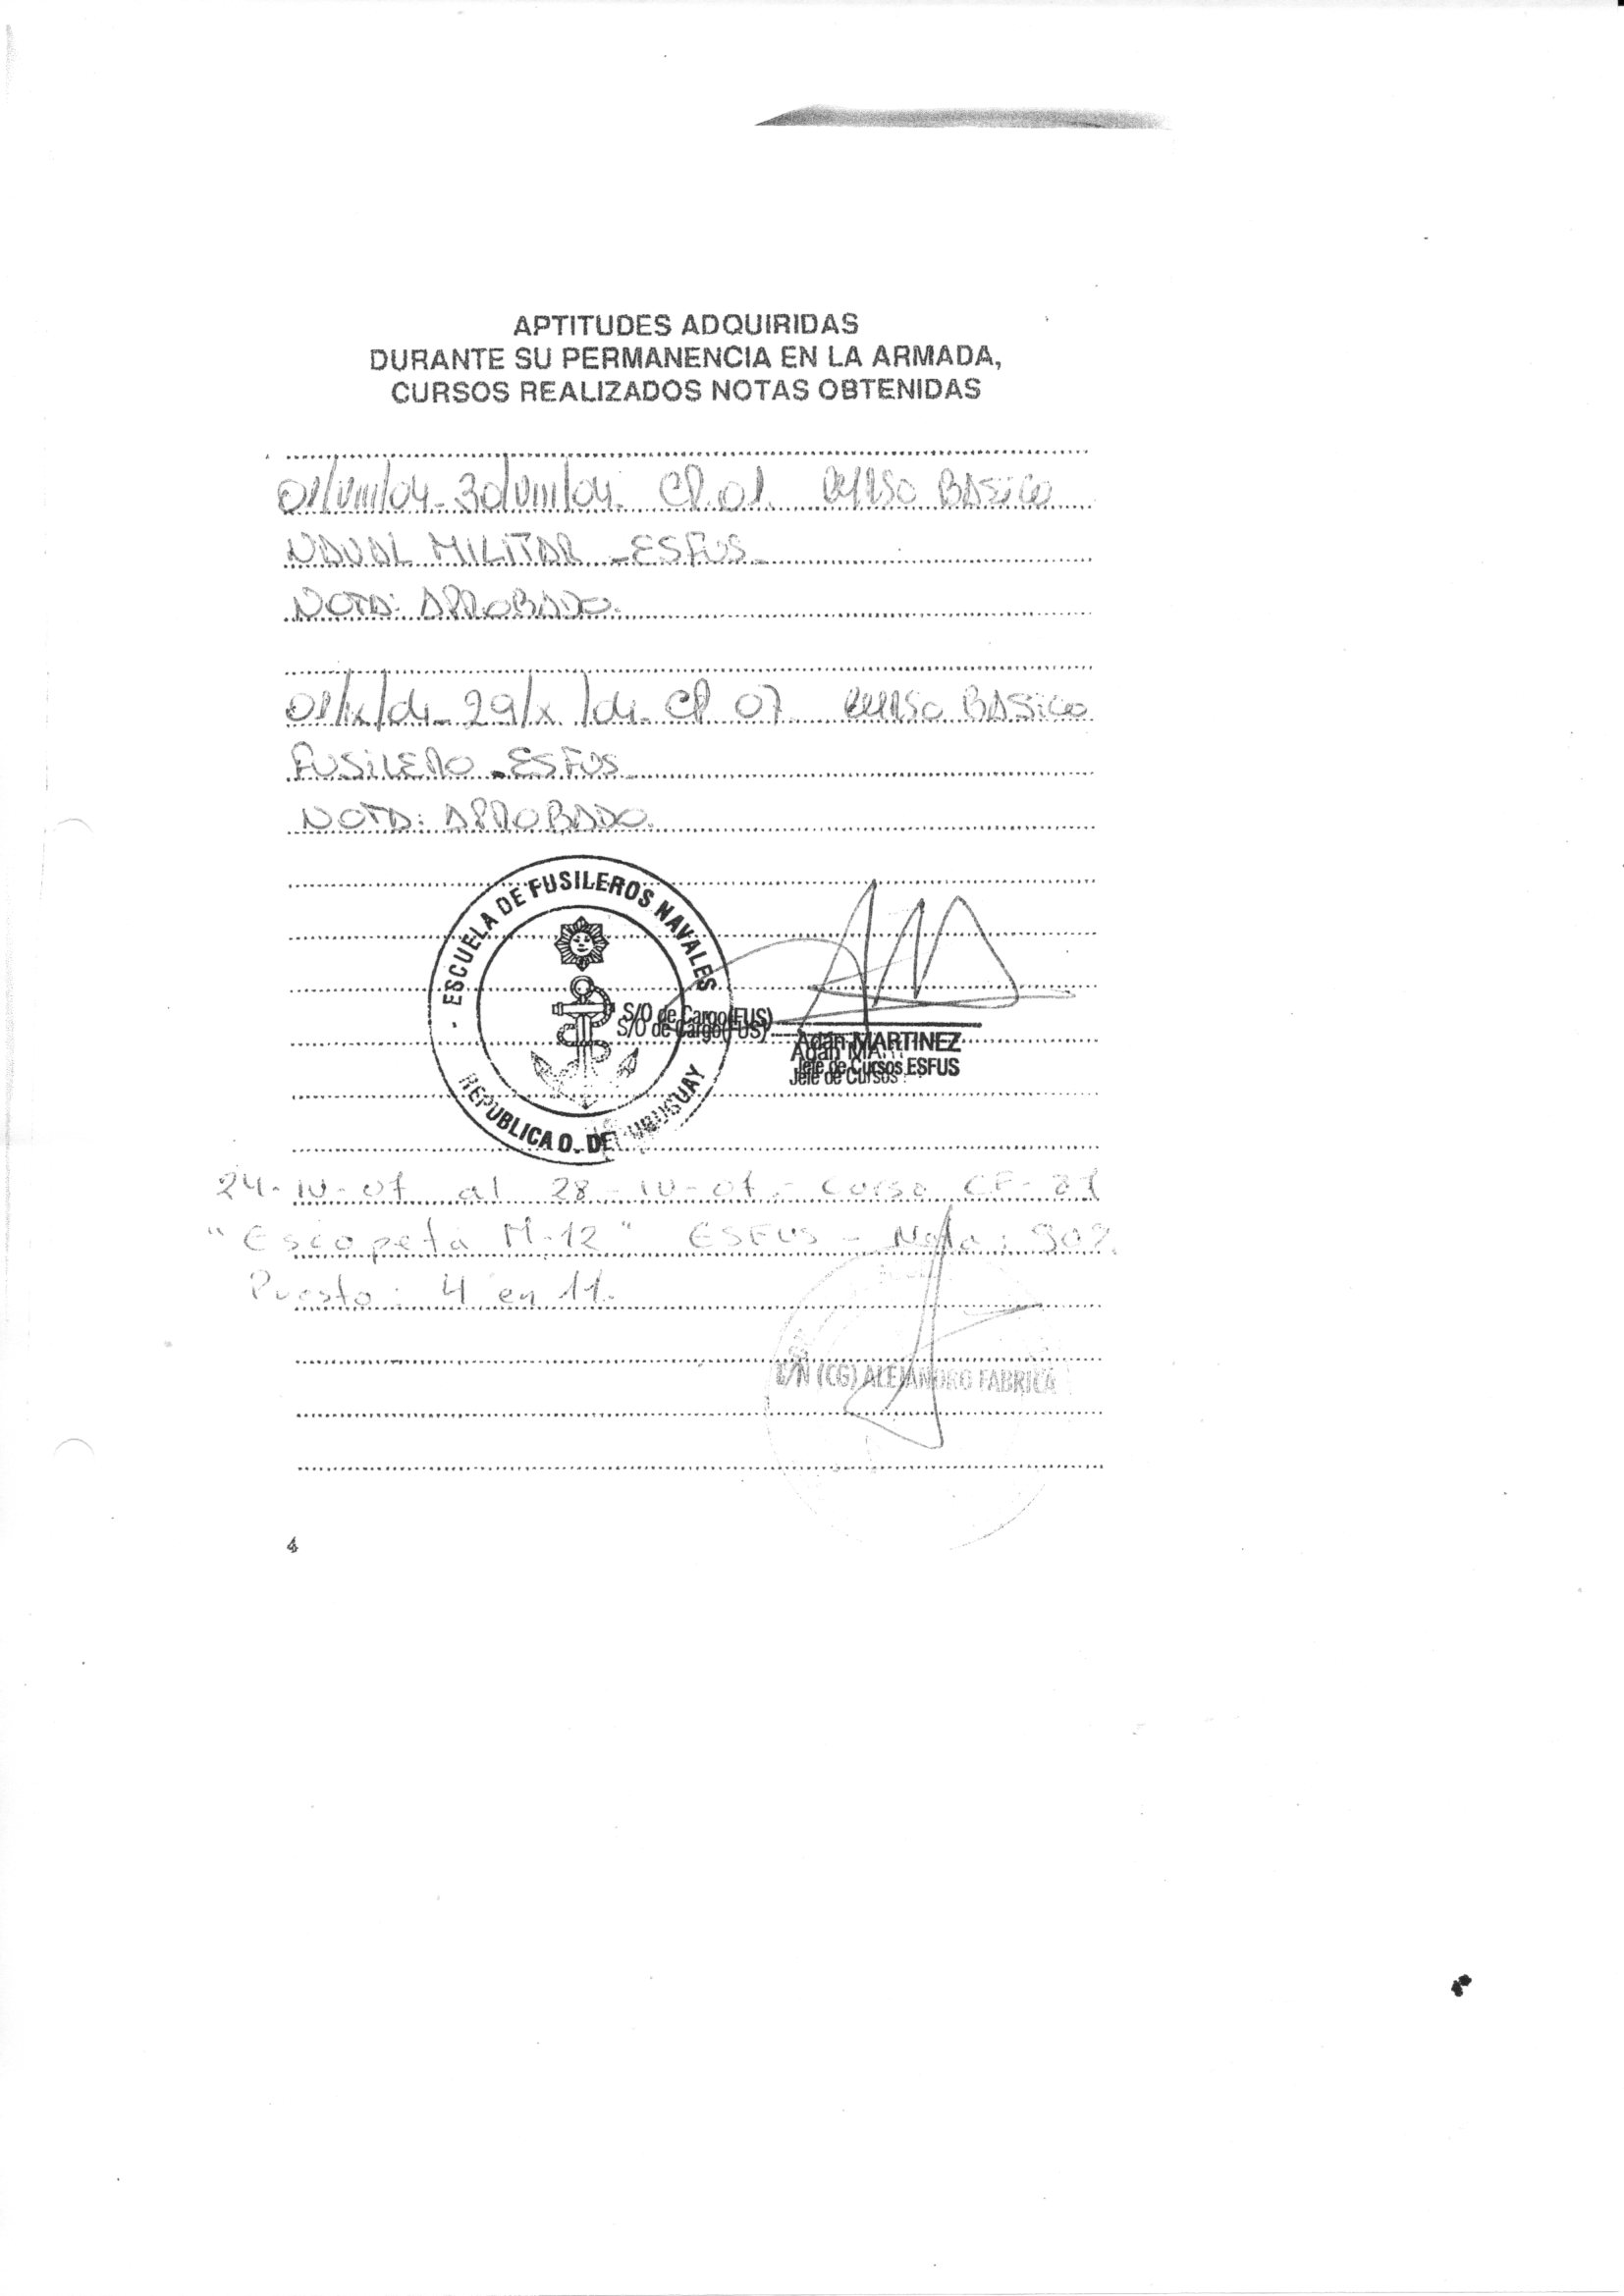 APTITUDES ADQUIRIDAS
DURANTE SU PERMANENCIA EN LA ARMADA,
CURSOS REALIZADOS NOTAS OBTENIDAS
01/VIII/04-30/VIII/04. CP.01. CURSO BASICO
NAVAL MILITAR - ESFUS -
NOTA: APROBADO.
01/IX/04- 29/X/04- CP 07. CURSO BASICO
FUSILERO - ESFUS -
NOTA: APROBADO.
- ESCUELA DE FUSILEROS NAVALES
REPUBLICA O. DEL URUGUAY
S/O de Cargo(FUS)
S/O de Cargo(FUS)
Adán MARTINEZ
Adán
Jefe de Cursos ESFUS
Jefe de Cursos
24-IV-07 al 28-IV-07.- Curso
"Escopeta M-12" ESFUS - Nota: 90%
Puesto: 4 en 11.
(CG) ALEJANDRO FABRICA
4